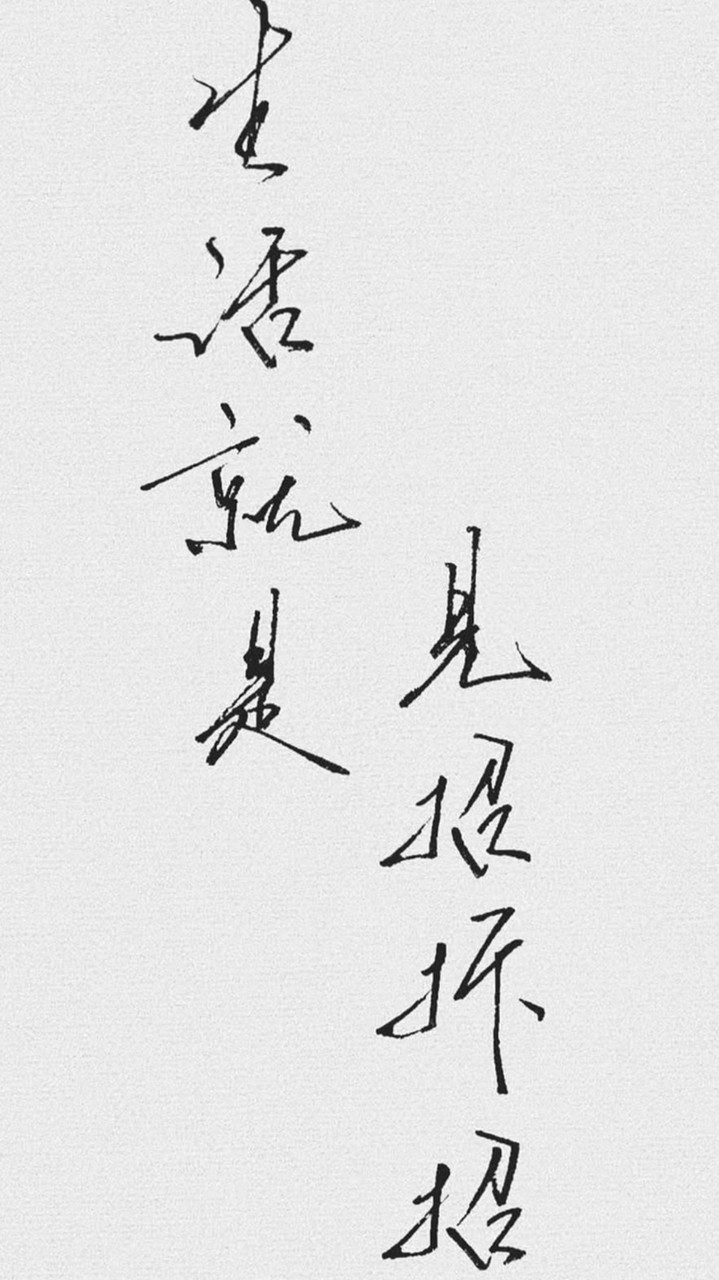 生活就是
见招拆招